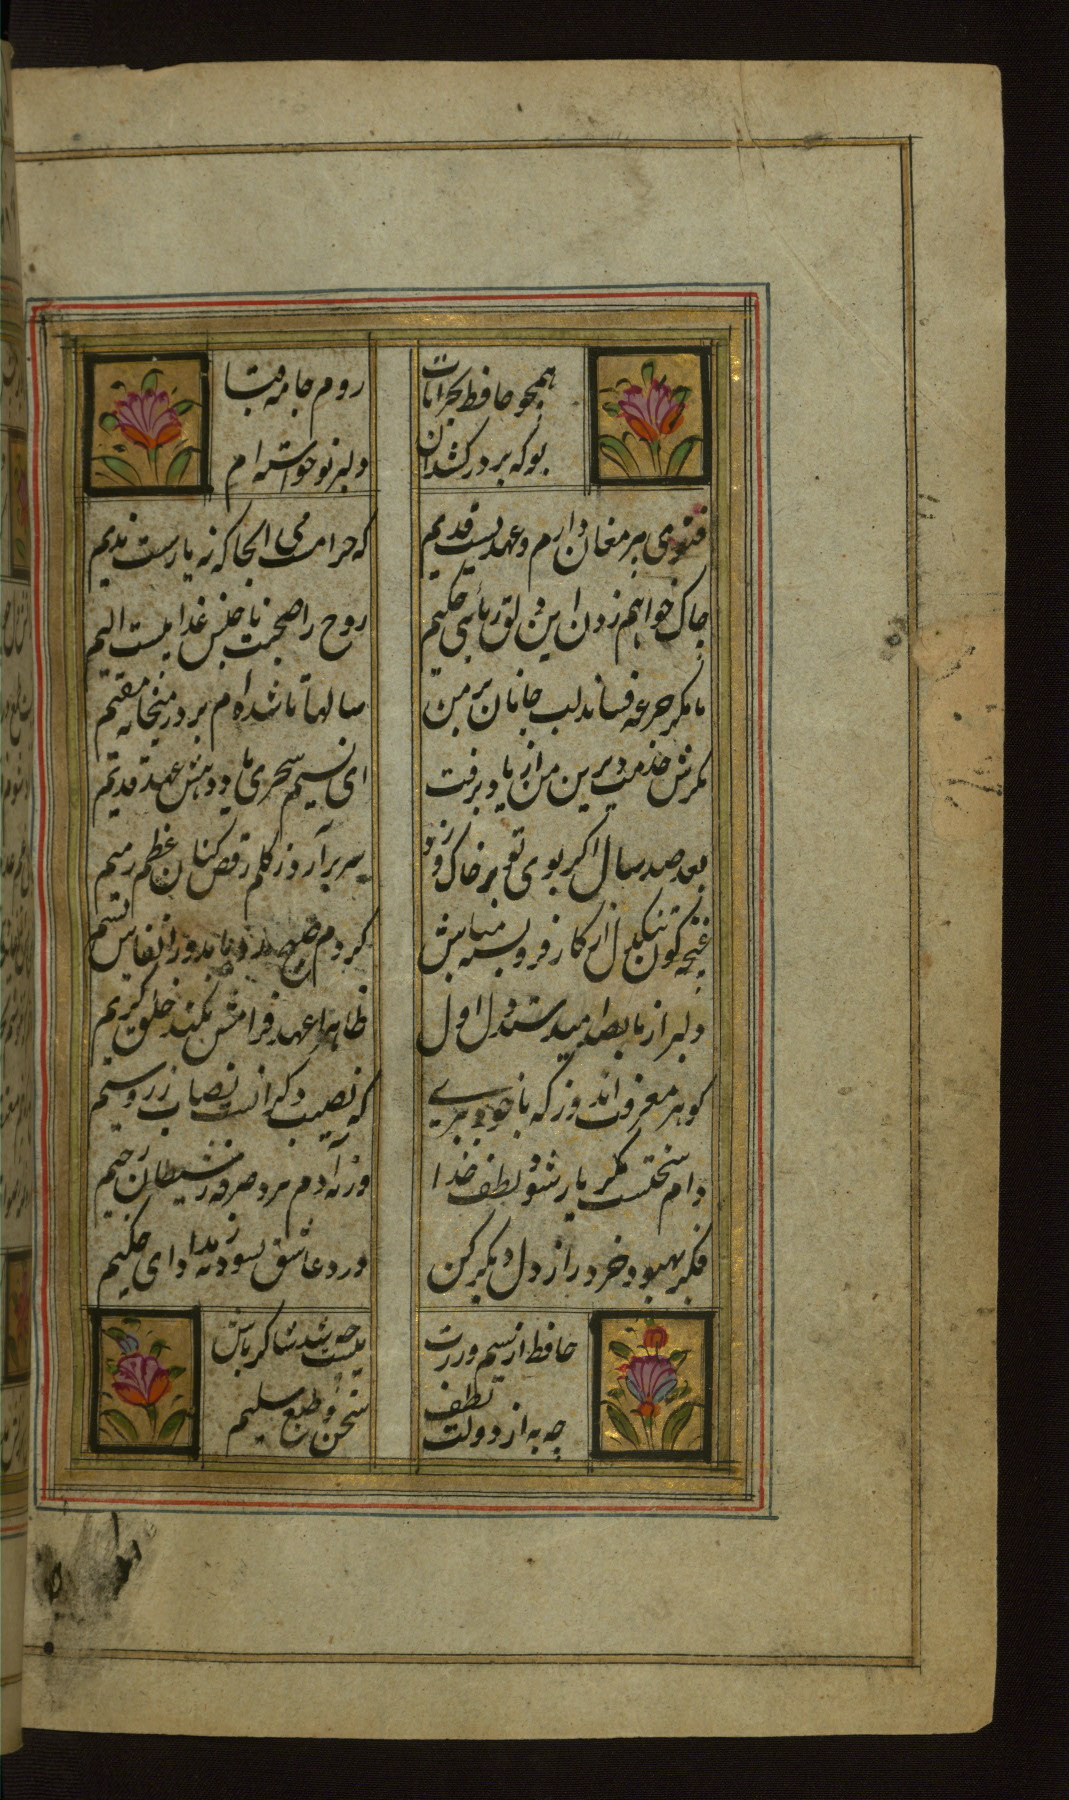 همچو حافظ بخرابات روم جامه قبا
بو که بر در کشد آن دلبر نوخواسته ام
فتوی پیر مغان دارم و عهدیست قدیم که حرامست می آنجا که نه یارست ندیم
چاک خواهم زدن این دلق ریائی حکیم روح را صحبت ناجنس عذابیست الیم
تا مگر جرعه فشاند لب جانان بر من سالها تا شده ام بر در میخانه مقیم
مگرش خدمت دیرین من از یاد برفت ای نسیم سحری یاد دهش عهد قدیم
بعد صد سال اگر بوی تو بر خاک وزد سر برآرد ز گلم رقص کنان عظم رمیم
غنچه گون تنگدل از کار فرو بسته مباش کز دم صبح مدد انفاس نسیم
دلبر از ما بصد امید ستد دل اول ظاهرا عهد فرامش نکند خلق کریم
گوهر معرفت اندوز که با خود ببری که نصیب دگرانست نصاب زر و سیم
دام سختست مگر یار شود لطف خدا ورنه آدم نبرد صرفه ز شیطان رجیم
فکر بهبود خرد راز دل دیگر کن درد عاشق نشود به ز مداوای حکیم
حافظ ار سیم و زرت نیست چه شد شاکر باش
چه به از دولت لطف سخن و طبع سلیم